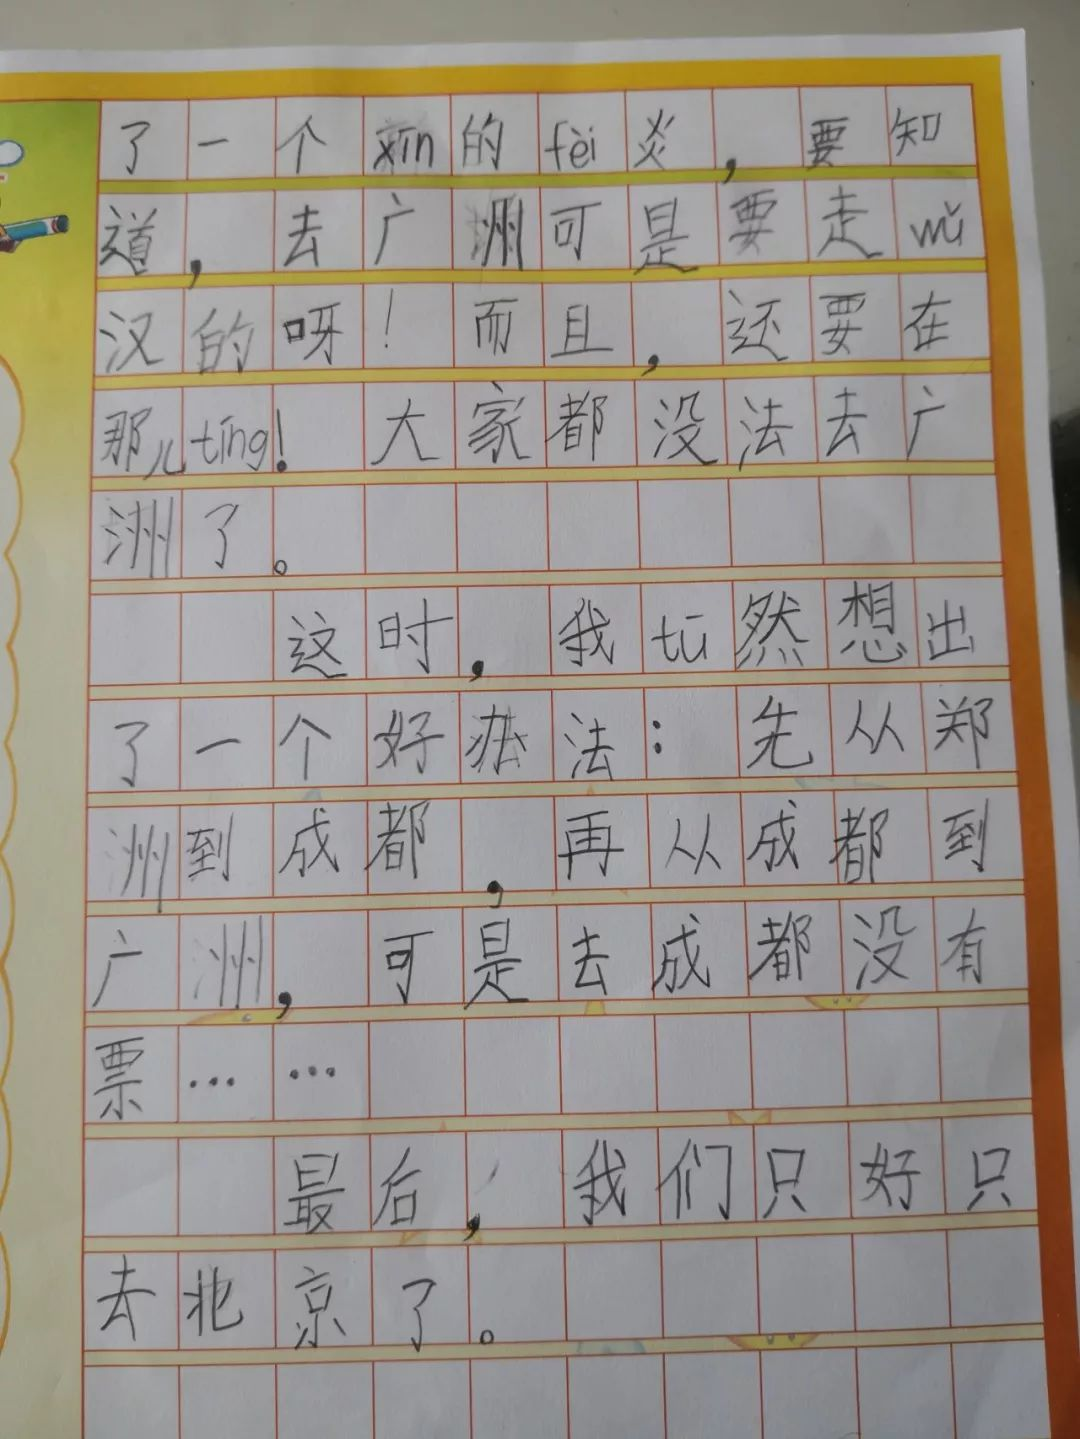 了一个xīn的fèi炎，要知
道，去广洲可是要走wǔ
汉的呀！而且，还要在
那儿tíng！大家都没法去广
洲了。
这时，我tū然想出
了一个好办法：先从郑
洲到成都，再从成都到
广洲，可是去成都没有
票……
最后，我们只好只
去北京了。